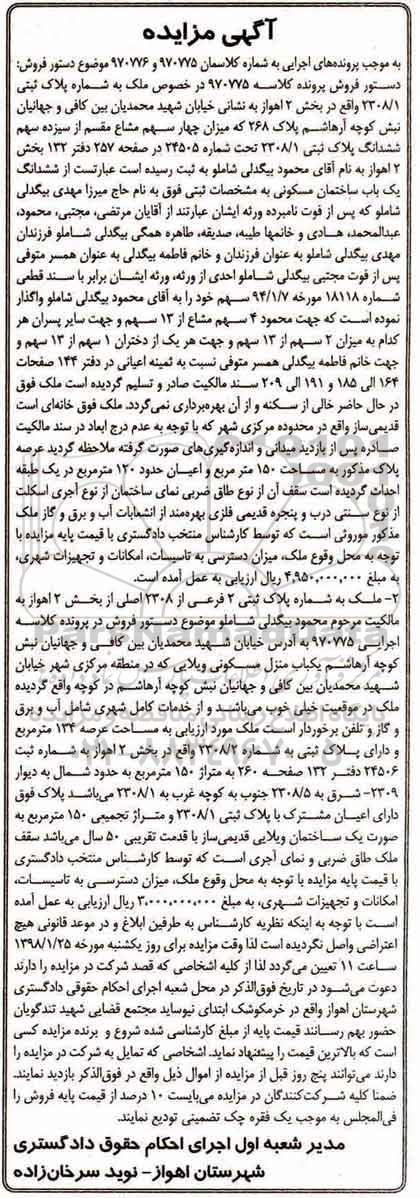 آگهی مزایده
به موجب پرونده‌های اجرایی به شماره کلاسمان ۹۷۰۷۷۵ و ۹۷۰۷۷۶ موضوع دستور فروش:
دستور فروش پرونده کلاسه ۹۷۰۷۷۵ در خصوص ملک به شماره پلاک ثبتی
۲۳۰۸/۱ واقع در بخش ۲ اهواز به نشانی خیابان شهید محمدیان بین کافی و جهانیان
نبش کوچه آرهاشم پلاک ۲۶۸ که میزان چهار سهم مشاع مقسم از سیزده سهم
ششدانگ پلاک ثبتی ۲۳۰۸/۱ تحت شماره ۲۴۵۰۵ در صفحه ۲۵۷ دفتر ۱۳۲ بخش
۲ اهواز به نام آقای محمود بیگدلی شاملو به ثبت رسیده است عبارتست از ششدانگ
یک باب ساختمان مسکونی به مشخصات ثبتی فوق به نام حاج میرزا مهدی بیگدلی
شاملو که پس از فوت نامبرده ورثه ایشان عبارتند از آقایان مرتضی، مجتبی، محمود،
عبدالمحمد، هادی و خانمها طیبه، صدیقه، طاهره همگی بیگدلی شاملو فرزندان
مهدی بیگدلی شاملو به عنوان فرزندان و خانم فاطمه بیگدلی به عنوان همسر متوفی
پس از فوت مجتبی بیگدلی شاملو احدی از ورثه، ورثه ایشان برابر با سند قطعی
شماره ۱۸۱۱۸ مورخه ۹۴/۱/۷ سهم خود را به آقای محمود بیگدلی شاملو واگذار
نموده است که جهت محمود ۴ سهم مشاع از ۱۳ سهم و جهت سایر پسران هر
کدام به میزان ۲ سهم از ۱۳ سهم و جهت هر یک از دختران ۱ سهم از ۱۳ سهم و
جهت خانم فاطمه بیگدلی همسر متوفی نسبت به ثمینه اعیانی در دفتر ۱۴۴ صفحات
۱۶۴ الی ۱۸۵ و ۱۹۱ الی ۲۰۹ سند مالکیت صادر و تسلیم گردیده است ملک فوق
در حال حاضر خالی از سکنه و از آن بهره‌برداری نمی‌گردد. ملک فوق خانه‌ای است
قدیمی‌ساز واقع در محدوده مرکزی شهر که با توجه به عدم درج ابعاد در سند مالکیت
صادره پس از بازدید میدانی و اندازه‌گیری‌های صورت گرفته ملاحظه گردید عرصه
پلاک مذکور به مساحت ۱۵۰ متر مربع و اعیان حدود ۱۲۰ مترمربع در یک طبقه
احداث گردیده است سقف آن از نوع طاق ضربی نمای ساختمان از نوع آجری اسکلت
از نوع سنتی درب و پنجره قدیمی فلزی بهره‌مند از انشعابات آب و برق و گاز ملک
مذکور موروثی است که توسط کارشناس منتخب دادگستری با قیمت پایه مزایده با
توجه به محل وقوع ملک، میزان دسترسی به تاسیسات، امکانات و تجهیزات شهری،
به مبلغ ۴,۹۵۰,۰۰۰,۰۰۰ ریال ارزیابی به عمل آمده است.
۲- ملک به شماره پلاک ثبتی ۲ فرعی از ۲۳۰۸ اصلی از بخش ۲ اهواز به
مالکیت مرحوم محمود بیگدلی شاملو موضوع دستور فروش در پرونده کلاسه
اجرایی ۹۷۰۷۷۵ به آدرس خیابان شهید محمدیان بین کافی و جهانیان نبش
کوچه آرهاشم یکباب منزل مسکونی ویلایی که در منطقه مرکزی شهر خیابان
شهید محمدیان بین کافی و جهانیان نبش کوچه آرهاشم در کوچه واقع گردیده
ملک در موقعیت خیلی خوب می‌باشد و از خدمات کامل شهری شامل آب و برق
و گاز و تلفن برخوردار است ملک مورد ارزیابی به مساحت عرصه ۱۳۴ مترمربع
و دارای پلاک ثبتی به شماره ۲۳۰۸/۲ واقع در بخش ۲ اهواز به شماره ثبت
۲۴۵۰۶ دفتر ۱۳۲ صفحه ۲۶۰ به متراژ ۱۵۰ مترمربع به حدود شمال به دیوار
۲۳۰۹- شرق به ۲۳۰۸/۵ جنوب به کوچه غرب به ۲۳۰۸/۱ می‌باشد پلاک فوق
دارای اعیان مشترک با پلاک ثبتی ۲۳۰۸/۱ و متراژ تجمیعی ۱۵۰ مترمربع به
صورت یک ساختمان ویلایی قدیمی‌ساز با قدمت تقریبی ۵۰ سال می‌باشد سقف
ملک طاق ضربی و نمای آجری است که توسط کارشناس منتخب دادگستری
با قیمت پایه مزایده با توجه به محل وقوع ملک، میزان دسترسی به تاسیسات،
امکانات و تجهیزات شهری، به مبلغ ۳,۰۰۰,۰۰۰,۰۰۰ ریال ارزیابی به عمل آمده
است با توجه به اینکه نظریه کارشناس به طرفین ابلاغ و در موعد قانونی هیچ
اعتراضی واصل نگردیده است لذا وقت مزایده برای روز یکشنبه مورخه ۱۳۹۸/۱/۲۵
ساعت ۱۱ تعیین می‌گردد لذا از کلیه اشخاصی که قصد شرکت در مزایده را دارند
دعوت می‌شود در تاریخ فوق‌الذکر در محل شعبه اجرای احکام حقوقی دادگستری
شهرستان اهواز واقع در خرمکوشک ابتدای نیوساید مجتمع قضایی شهید تندگویان
حضور بهم رسانند قیمت پایه از مبلغ کارشناسی شده شروع و برنده مزایده کسی
است که بالاترین قیمت را پیشنهاد نماید. اشخاصی که تمایل به شرکت در مزایده را
دارند می‌توانند پنج روز قبل از مزایده از اموال ذیل واقع در فوق‌الذکر بازدید نمایند.
ضمنا کلیه شرکت‌کنندگان در مزایده می‌بایست ۱۰ درصد از قیمت پایه فروش را
فی‌المجلس به موجب یک فقره چک تضمینی تودیع نمایند.
مدیر شعبه اول اجرای احکام حقوق دادگستری
شهرستان اهواز- نوید سرخان‌زاده